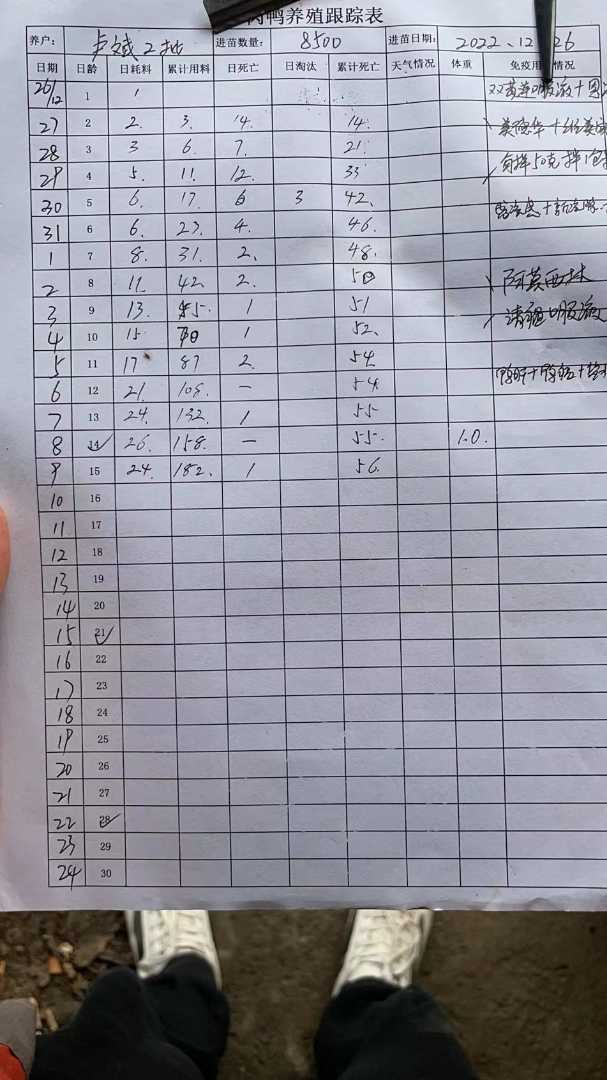 鸭养殖跟踪表
养户: 卢斌2批 进苗数量: 8500 进苗日期: 2022.12.26
日期 日龄 日耗料 累计用料 日死亡 日淘汰 累计死亡 天气情况 体重 免疫用 情况
26/12 1 1 双黄连口服液+
27 2 2. 3. 14. 14.
28 3 3 6. 7. 21.
29 4 5. 11. 12. 33
30 5 6. 17. 6 3 42.
31 6 6. 23. 4. 46.
1 7 8. 31. 2. 48.
2 8 11. 42. 2. 50 阿莫西林
3 9 13. 55. 1 51 口服液
4 10 15 70 1 52.
5 11 17 87 2. 54.
6 12 21. 108. — 54.
7 13 24. 132. 1 55
8 14 26. 158. — 55. 1.0.
9 15 24. 182. 1 56.
10 16
11 17
12 18
13 19
14 20
15 21
16 22
17 23
18 24
19 25
20 26
21 27
22 28
23 29
24 30